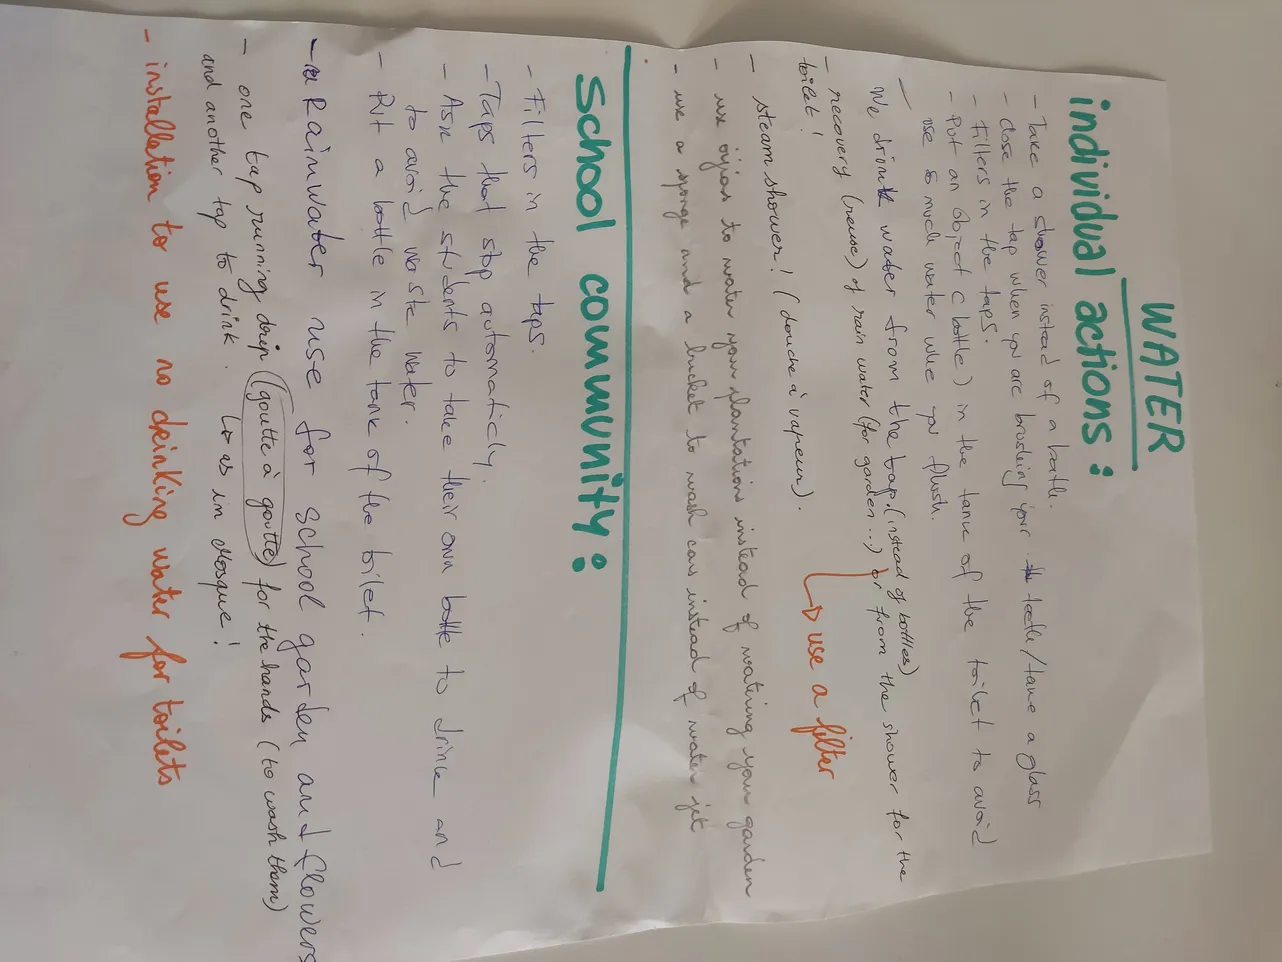 WATER
individual actions :
- Take a shower instead of a bath.
- close the tap when you are brushing your teeth/take a glass
- Filters in the taps.
- Put an object ( bottle) in the tank of the toilet to avoid
use so much water whe you flush.
- We drink water from the tap. (instead of bottles)
- recovery (reuse) of rain water (for garden...) or from the shower for the
toilet !
↳ use a filter
- steam shower ! ( douche à vapeur).
- use ojias to water your plantations instead of watering your garden
- use a sponge and a bucket to wash cars instead of water jet
School community :
- Filters in the taps.
- Taps that stop automaticly.
- Ask the students to take their own bottle to drink and
to avoid waste water.
- Put a bottle in the tank of the toilet.
- Rainwater use for school garden and flowers
- one tap running drip (goutte à goutte) for the hands (to wash them)
and another tap to drink. ↳ as in Mosque !
- installation to use no drinking water for toilets